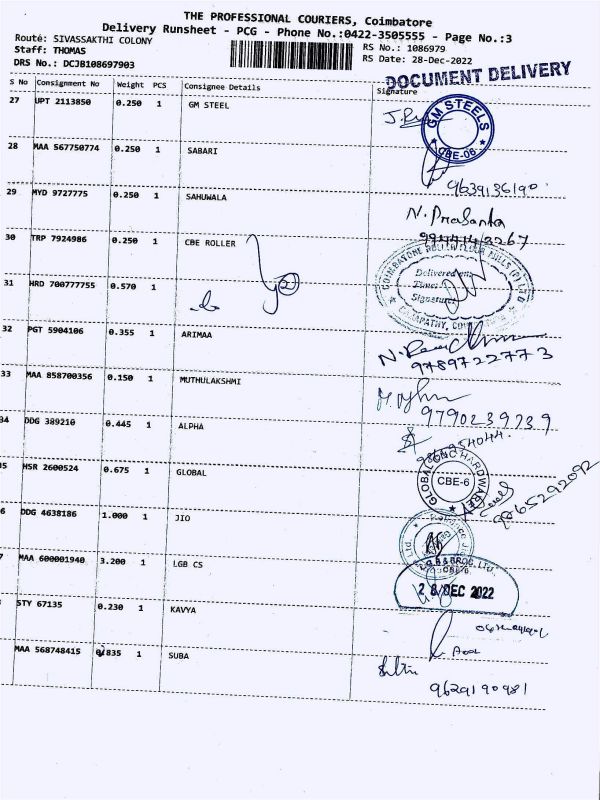 THE PROFESSIONAL COURIERS, Coimbatore
Delivery Runsheet - PCG - Phone No.:0422-3505555 - Page No.:3
Route: SIVASSAKTHI COLONY
Staff: THOMAS
DRS No.: DCJB108697903
RS No.: 1086979
RS Date: 28-Dec-2022
DOCUMENT DELIVERY
S No Consignment No Weight PCS Consignee Details Signature
27 UPT 2113850 0.250 1 GM STEEL
GM STEELS
CBE-06
28 MAA 567750774 0.250 1 SABARI
9639136190
29 MYD 9727775 0.250 1 SAHUWALA
N. Prasanta
30 TRP 7924986 0.250 1 CBE ROLLER
COIMBATORE ROLLER FLOUR MILLS (P) LTD
Delivered on:
Time:
Signature:
31 HRD 700777755 0.570 1
do
32 PGT 5904106 0.355 1 ARIMAA
9789722773
33 MAA 858700356 0.150 1 MUTHULAKSHMI
9790239739
34 DDG 389210 0.445 1 ALPHA
5 HSR 2600524 0.675 1 GLOBAL
GLOBAL HARDWARE
CBE-6
9865292092
6 DDG 4638186 1.000 1 JIO
7 MAA 600001940 3.200 1 LGB CS
28 DEC 2022
STY 67135 0.230 1 KAVYA
MAA 568748415 0.835 1 SUBA
9629190981